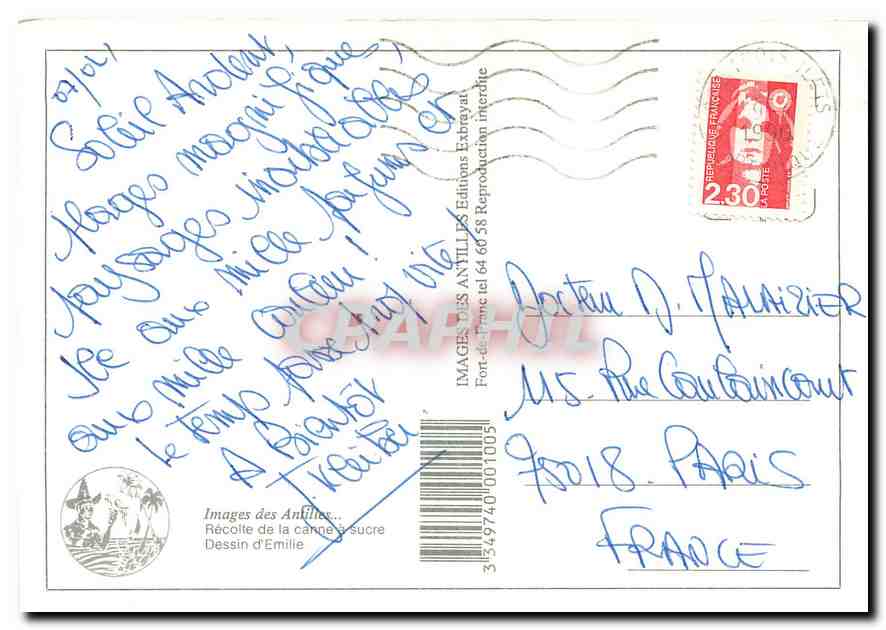 07/01,
Soleil Ardent,
Plages magnifiques,
paysages inoubliables
Ile aux mille parfums et
aux mille couleurs !
Le temps passe trop vite !
A Bientôt
Images des Antilles...
Récolte de la canne à sucre
Dessin d'Emilie
3 349740 001005
IMAGES DES ANTILLES Editions Exbrayat
Fort-de-Franc tel 64 60 58 Reproduction interdite
CPAPHIL
REPUBLIQUE FRANÇAISE
2.30
LA POSTE
Docteur D. MALAIZIER
115 Rue Caulaincourt
75018 PARIS
FRANCE